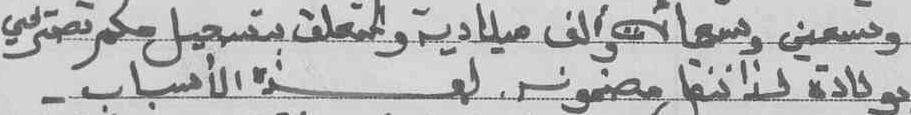 وتسعين وتسعمائة وألف ميلادية والمتعلق بتسجيل حكم تصريحي
بولادة لذا ننفا مضمونه. لهذه الأسباب -